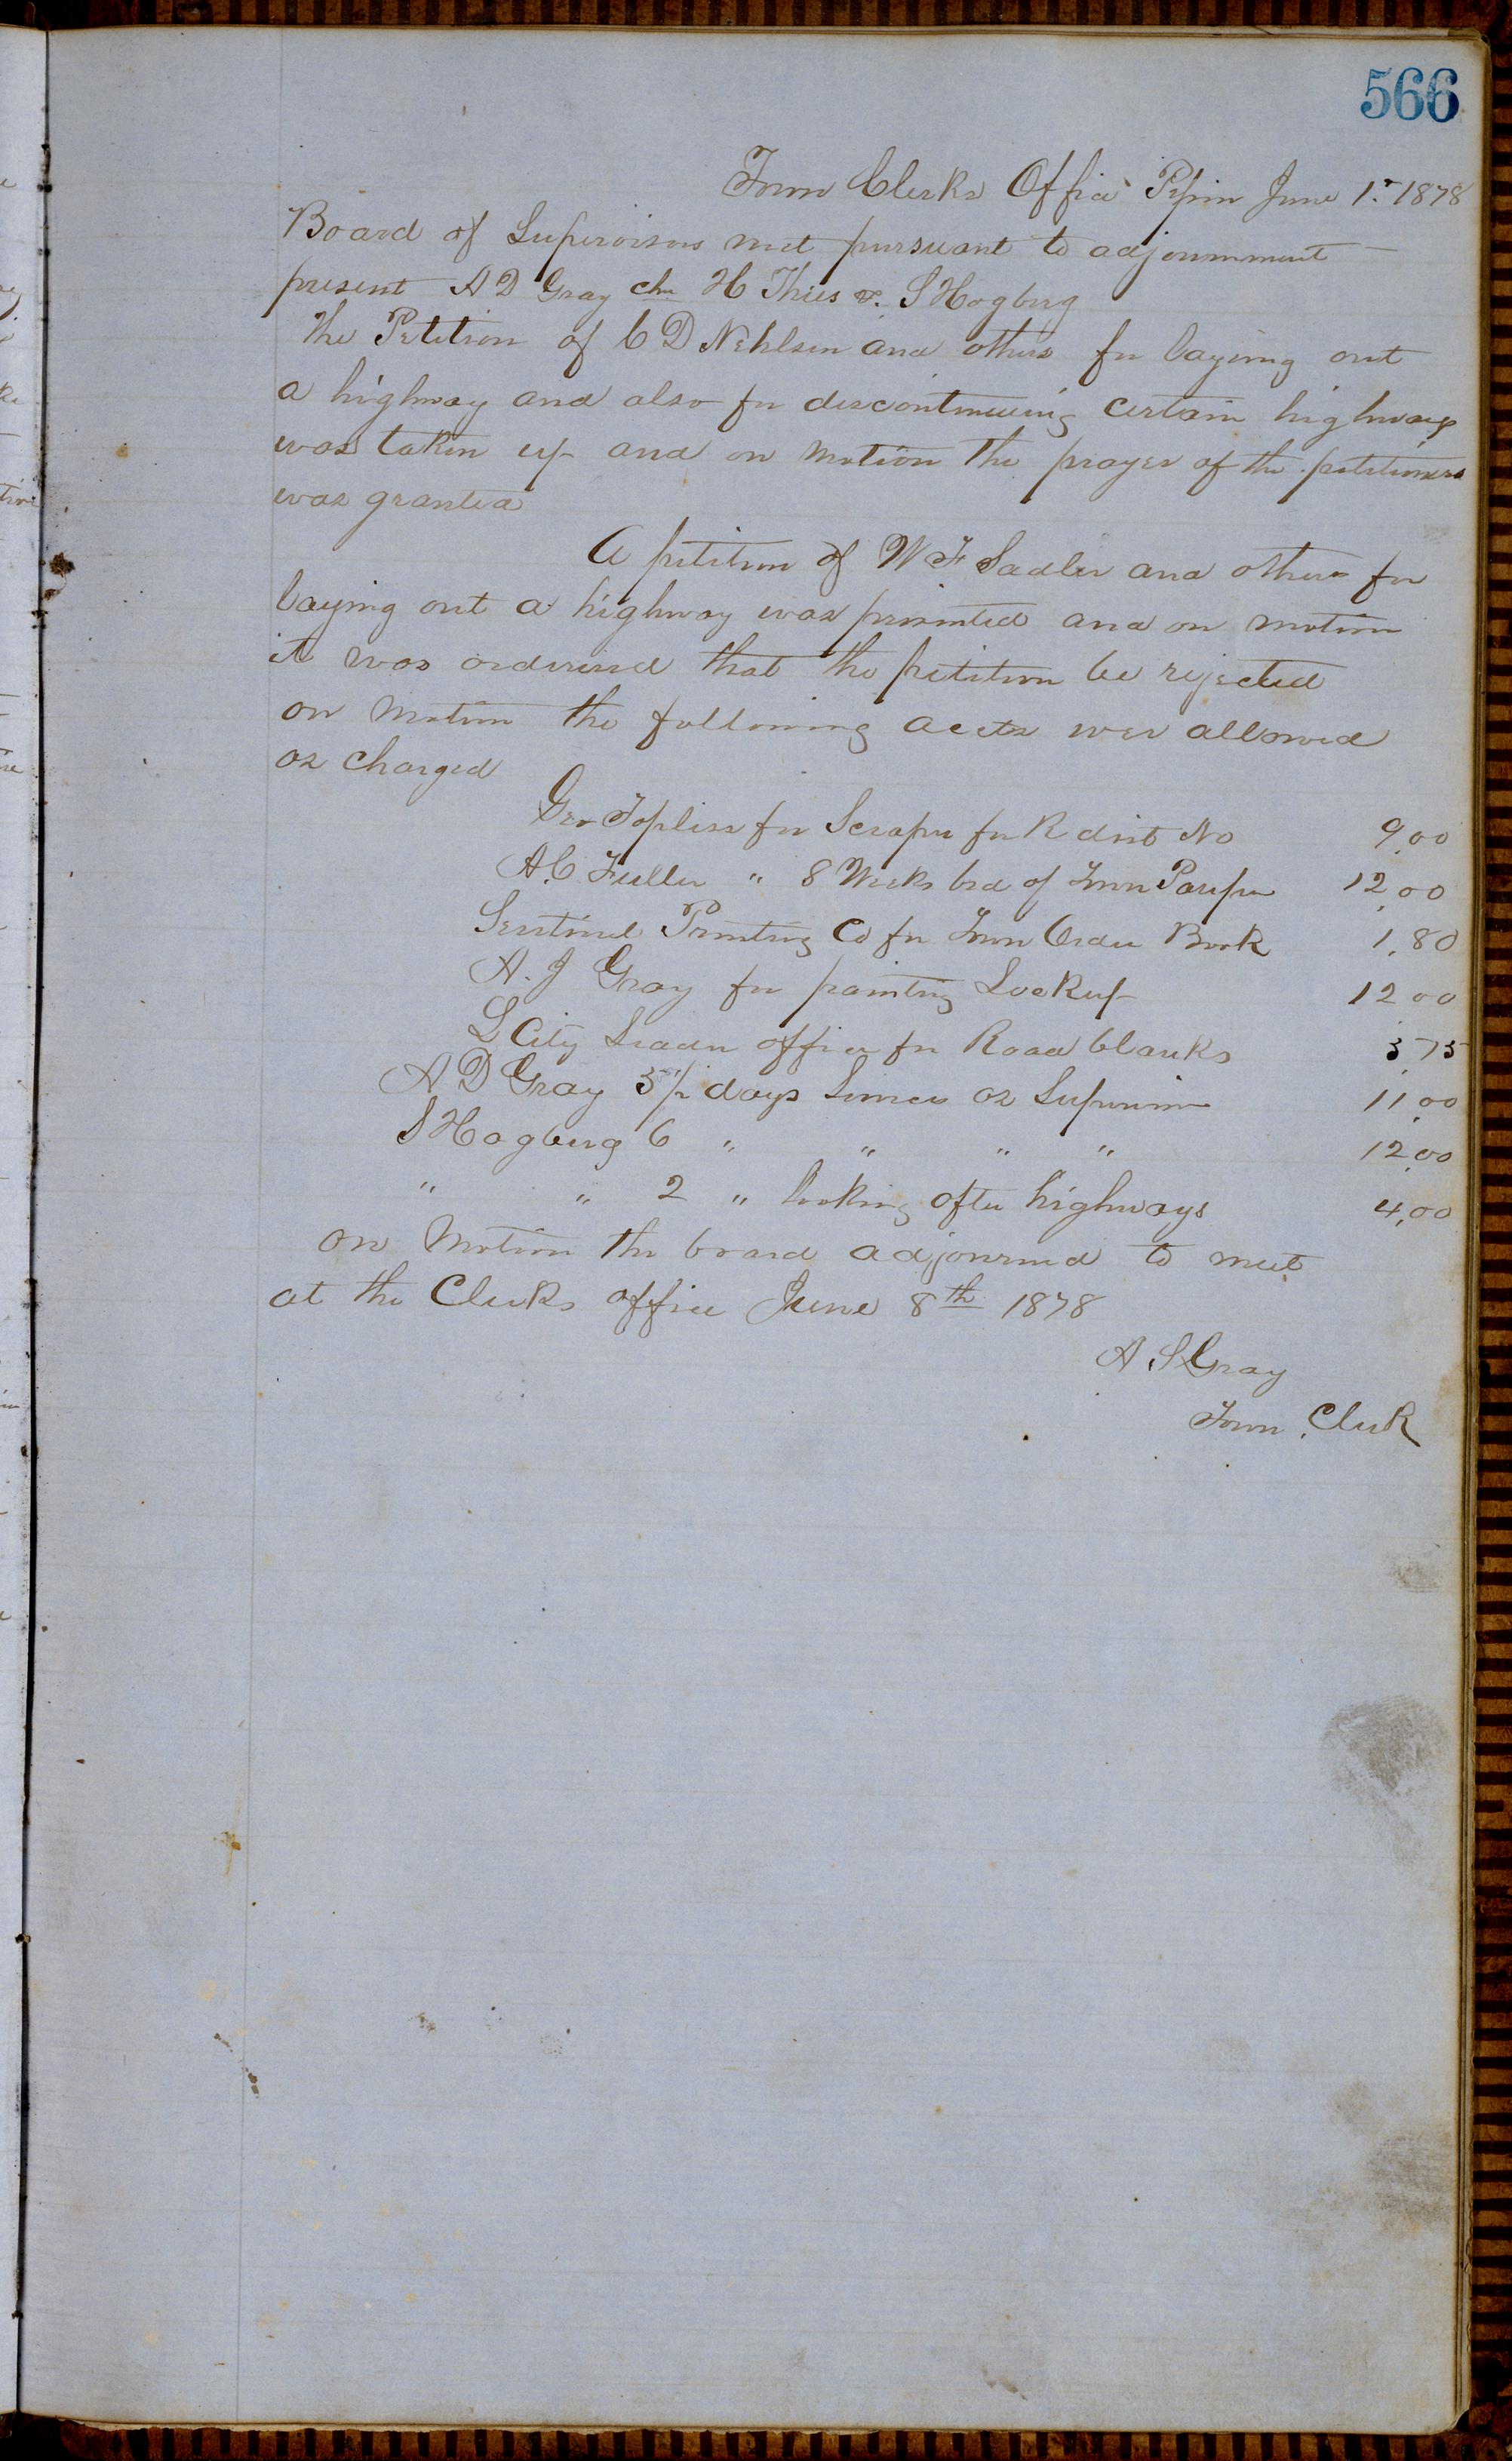 566
Town Clerks Office Pepin June 1st 1878
Board of Supervisors met pursuant to adjournment
present A D Gray chn H Thies & S Hogberg
the Petition of C D Nehlsen and others for laying out
a highway and also for discontinueing certain highways
was taken up and on motion the prayer of the petitioners
was granted
A petition of W F Sadler and others for
laying out a highway was presented and on motion
it was ordered that the petition be rejected
on motion the following accts wer allowed
as charged
Geo Topliss for Scraper for R dist No 9.00
A.C Fuller " 8 Weeks brd of Town Pauper 12.00
Sentinel Printing Co for Town Order Book 1.80
A. J Gray for painting Lockup 12 00
L City Leader office for Road blanks 3.75
A D Gray 5 1/2 days Servces as Supervisor 11.00
S Hogberg 6 " " " " 12.00
" " 2 " looking after highways 4.00
on Motion the board adjourned to meet
at the Clerks office June 8th 1878
A S Gray
Town Clerk